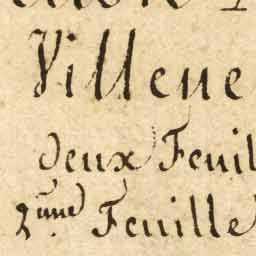 Villene
deux Feuil
2.ème Feuille